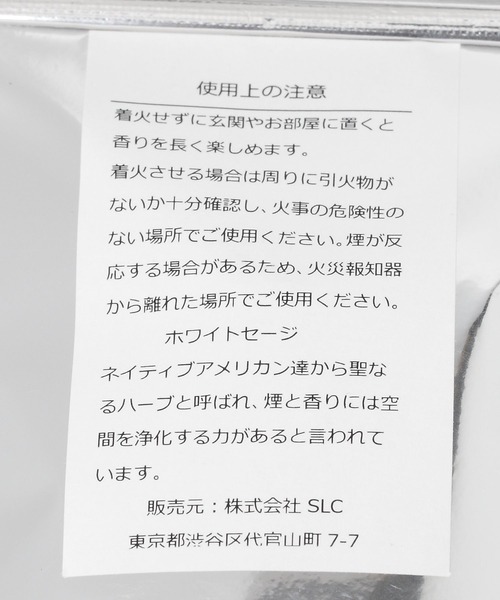 使用上の注意
着火せずに玄関やお部屋に置くと
香りを長く楽しめます。
着火させる場合は周りに引火物が
ないか十分確認し、火事の危険性の
ない場所でご使用ください。煙が反
応する場合があるため、火災報知器
から離れた場所でご使用ください。
ホワイトセージ
ネイティブアメリカン達から聖な
るハーブと呼ばれ、煙と香りには空
間を浄化する力があると言われて
います。
販売元：株式会社 SLC
東京都渋谷区代官山町 7-7